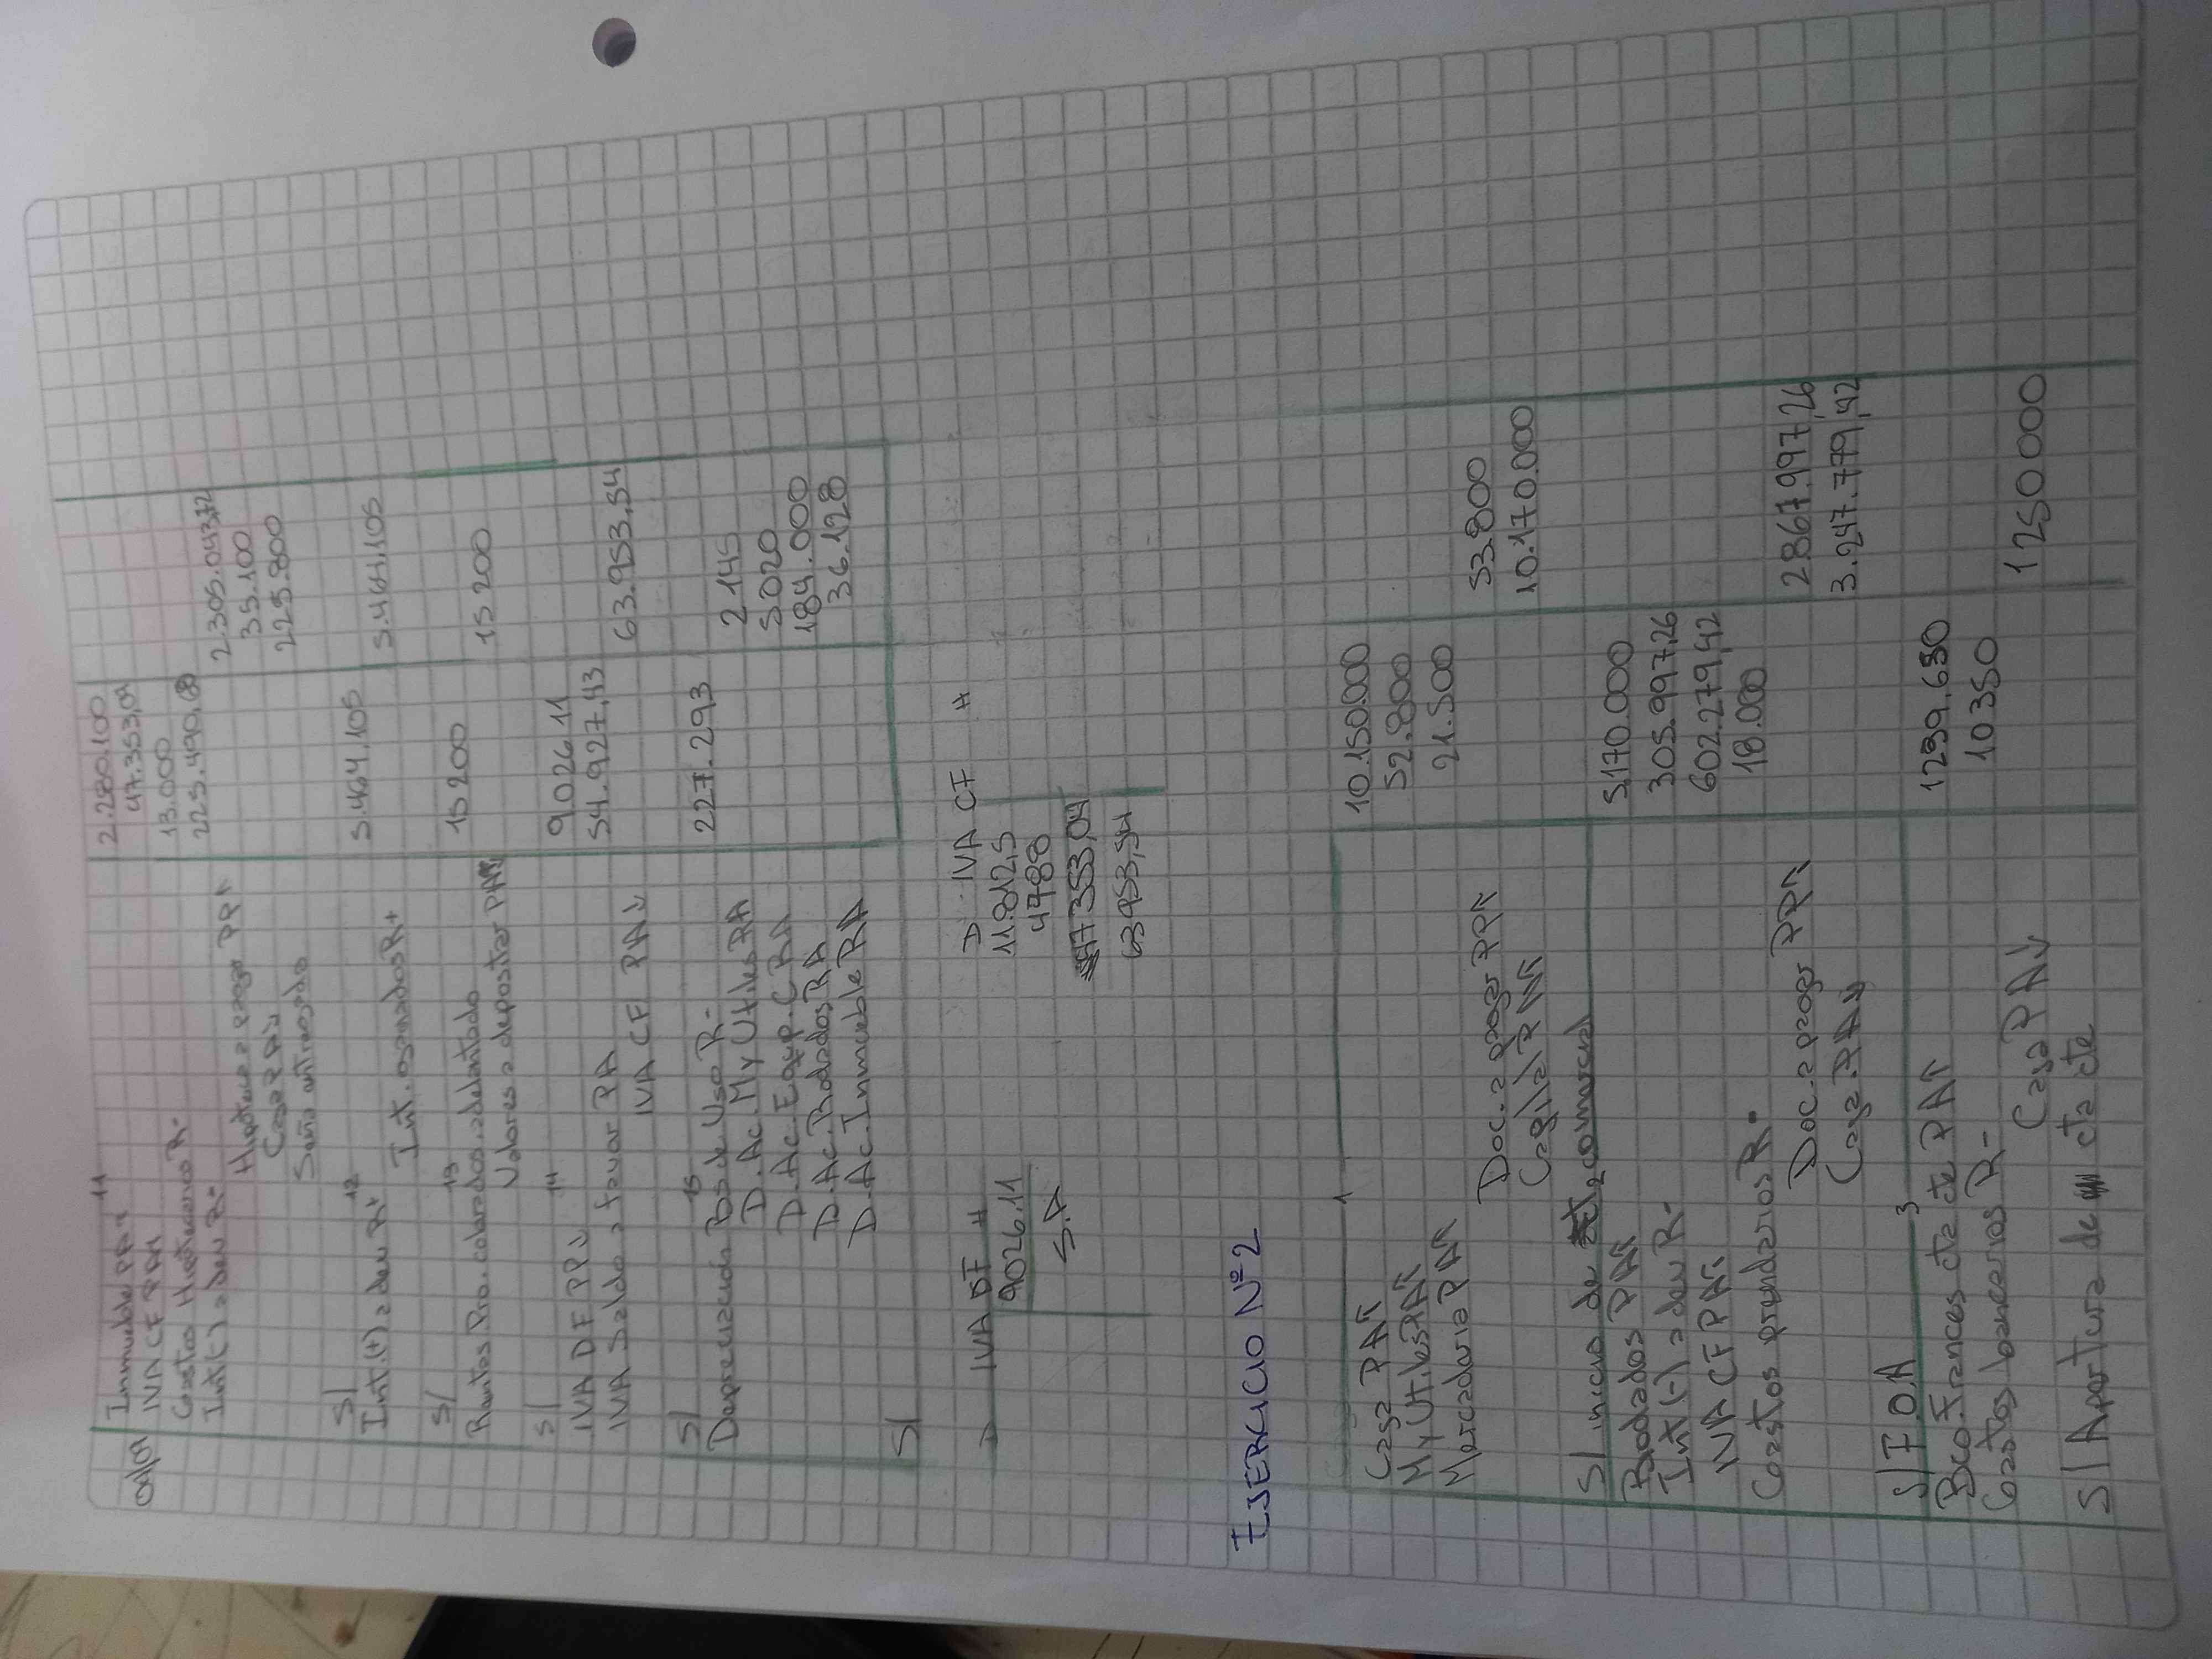 04/01 11
Inmueble PA↑ 2.280.100
IVA CF PA↑ 47.353,04
Gastos Hipotecario R- 13.000
Int(-) a dev R- 225.490,68
Hipoteca a pagar PP↑ 2.305.043,72
Caja PA↓ 35.100
Seña anticipado 225.800
S/ 12
Int.(+) a dev R+ 5.464.105
Int. ganados R+ 5.464.105
S/ 13
Rentas Pro. cobrados adelantado 15 200
Valores a depositar PA↑ 15 200
S/ 14
IVA DF PP↓ 9.026.11
IVA Saldo a favor PA 54.927,43
IVA CF PA↓ 63.953,54
S/ 15
Depreciación Bs de Uso R- 227.293
D. Ac. M y Utiles RA 2 145
D. Ac. Equip. C RA 5020
D. Ac. Rodados RA 184.000
D. Ac. Inmueble RA 36.128
S/
D IVA DF H D IVA CF H
9026.11 11.812,5
4788
S.A 47 353,04
63953,54
EJERCICIO Nº 2
1
Caja PA↑ 10.150.000
M y Utiles PA↑ 52.800
Mercadería PA↑ 21.500
Doc. a pagar PP↑ 53.800
Capital PN↑ 10.170.000
S/ inicio de act comercial
2
Rodados PA↑ 5.170.000
Int(-) a dev R- 305.997,26
IVA CF PA↑ 602.279,42
Gastos prendarios R- 18.000
Doc. a pagar PP↑ 2.867.997,26
Caja PA↓ 3.247.779,42
S/ F.O.A 3
Bco. Frances cta cte PA↑ 1239.650
Gastos bancarios R- 10350
Caja PA↓ 1250000
S/ Apertura de cta cte